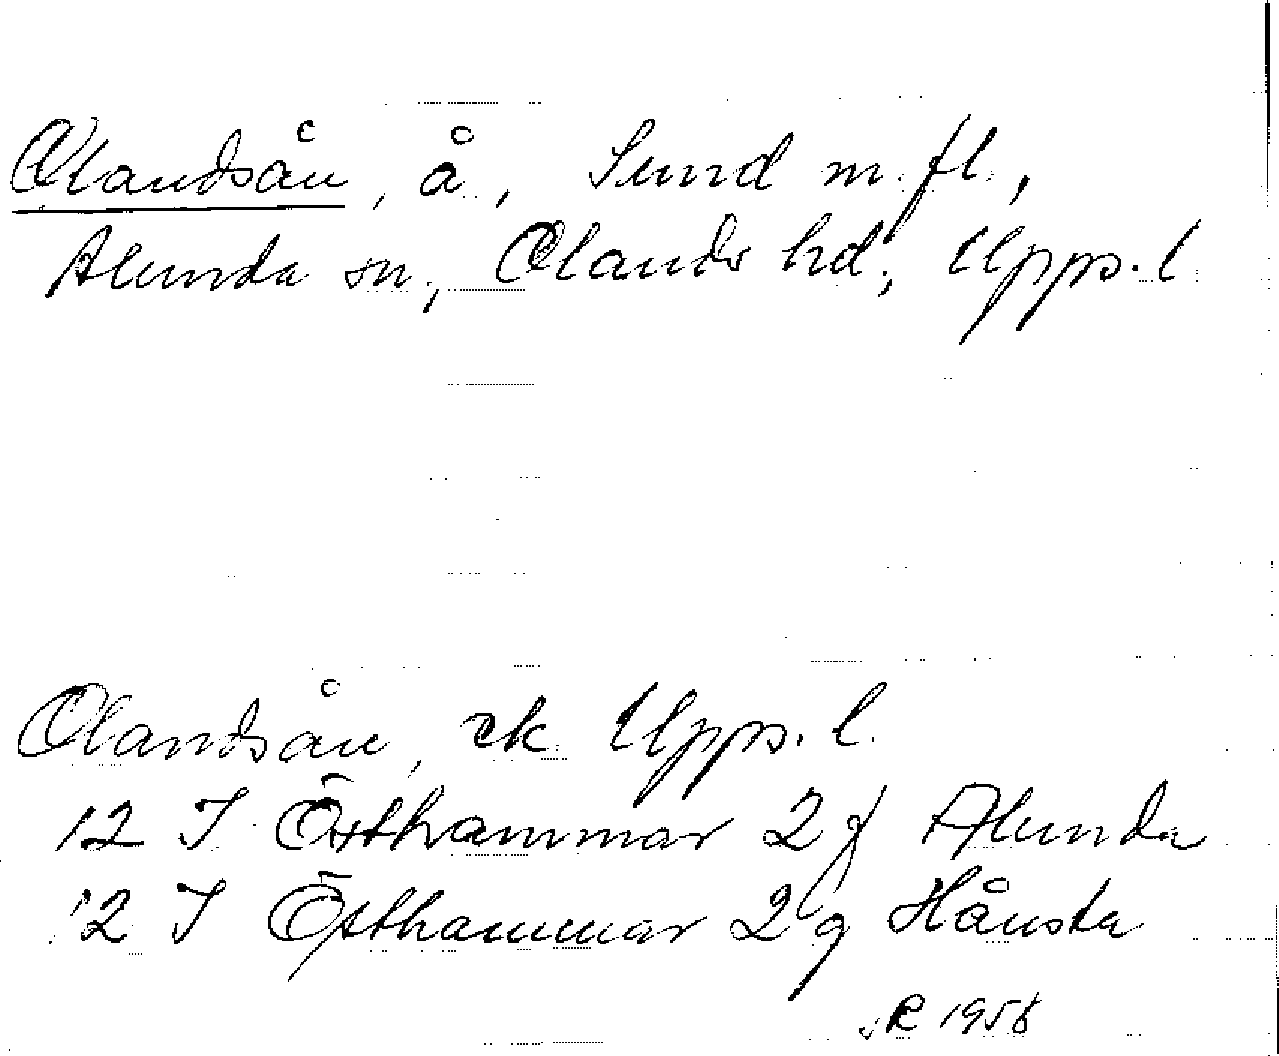 Olandsån, å, Sund m. fl.,
Alunda sn, Olands hd, Upps. l
Olandsån, ek Upps. l.
12 I Östhammar 2 f Alunda
12 I Östhammar 2 g Hånsta
R 1958